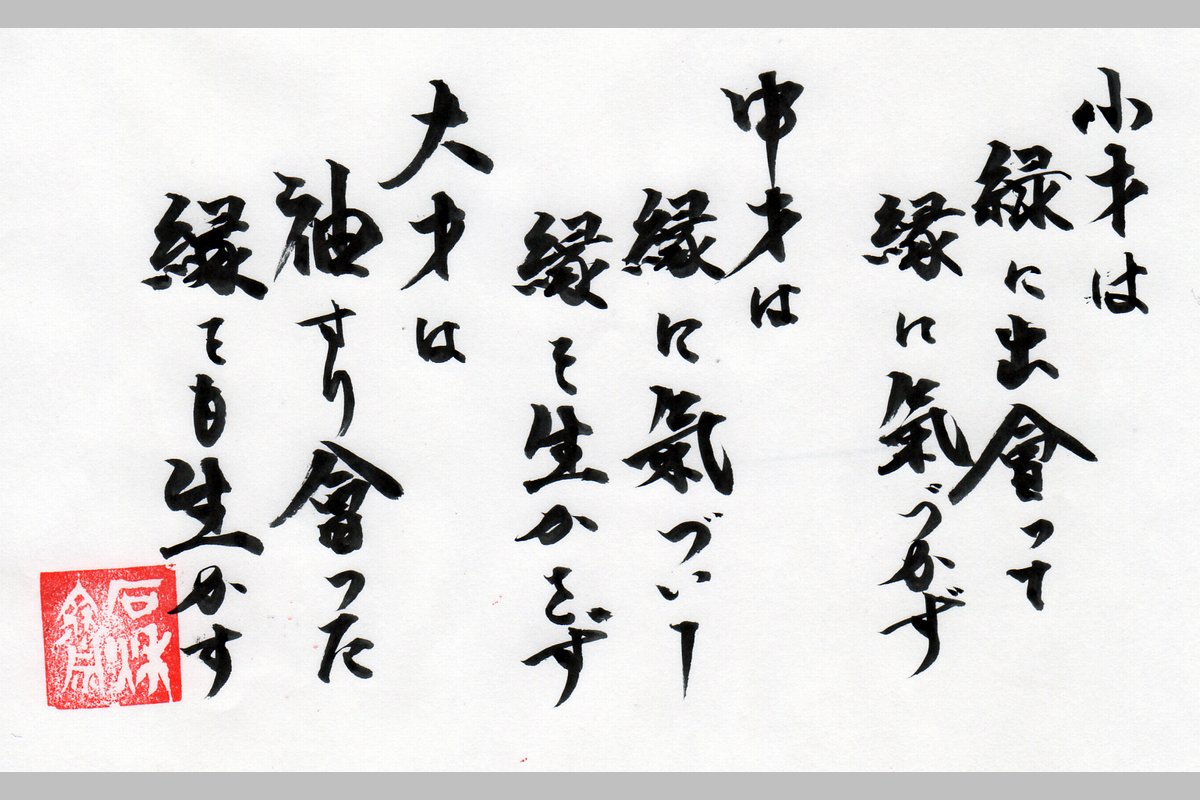 小才は
縁に出會って
縁に氣づかず
中才は
縁に氣づいて
縁を生かさず
大才は
袖すり會った
縁をも生かす